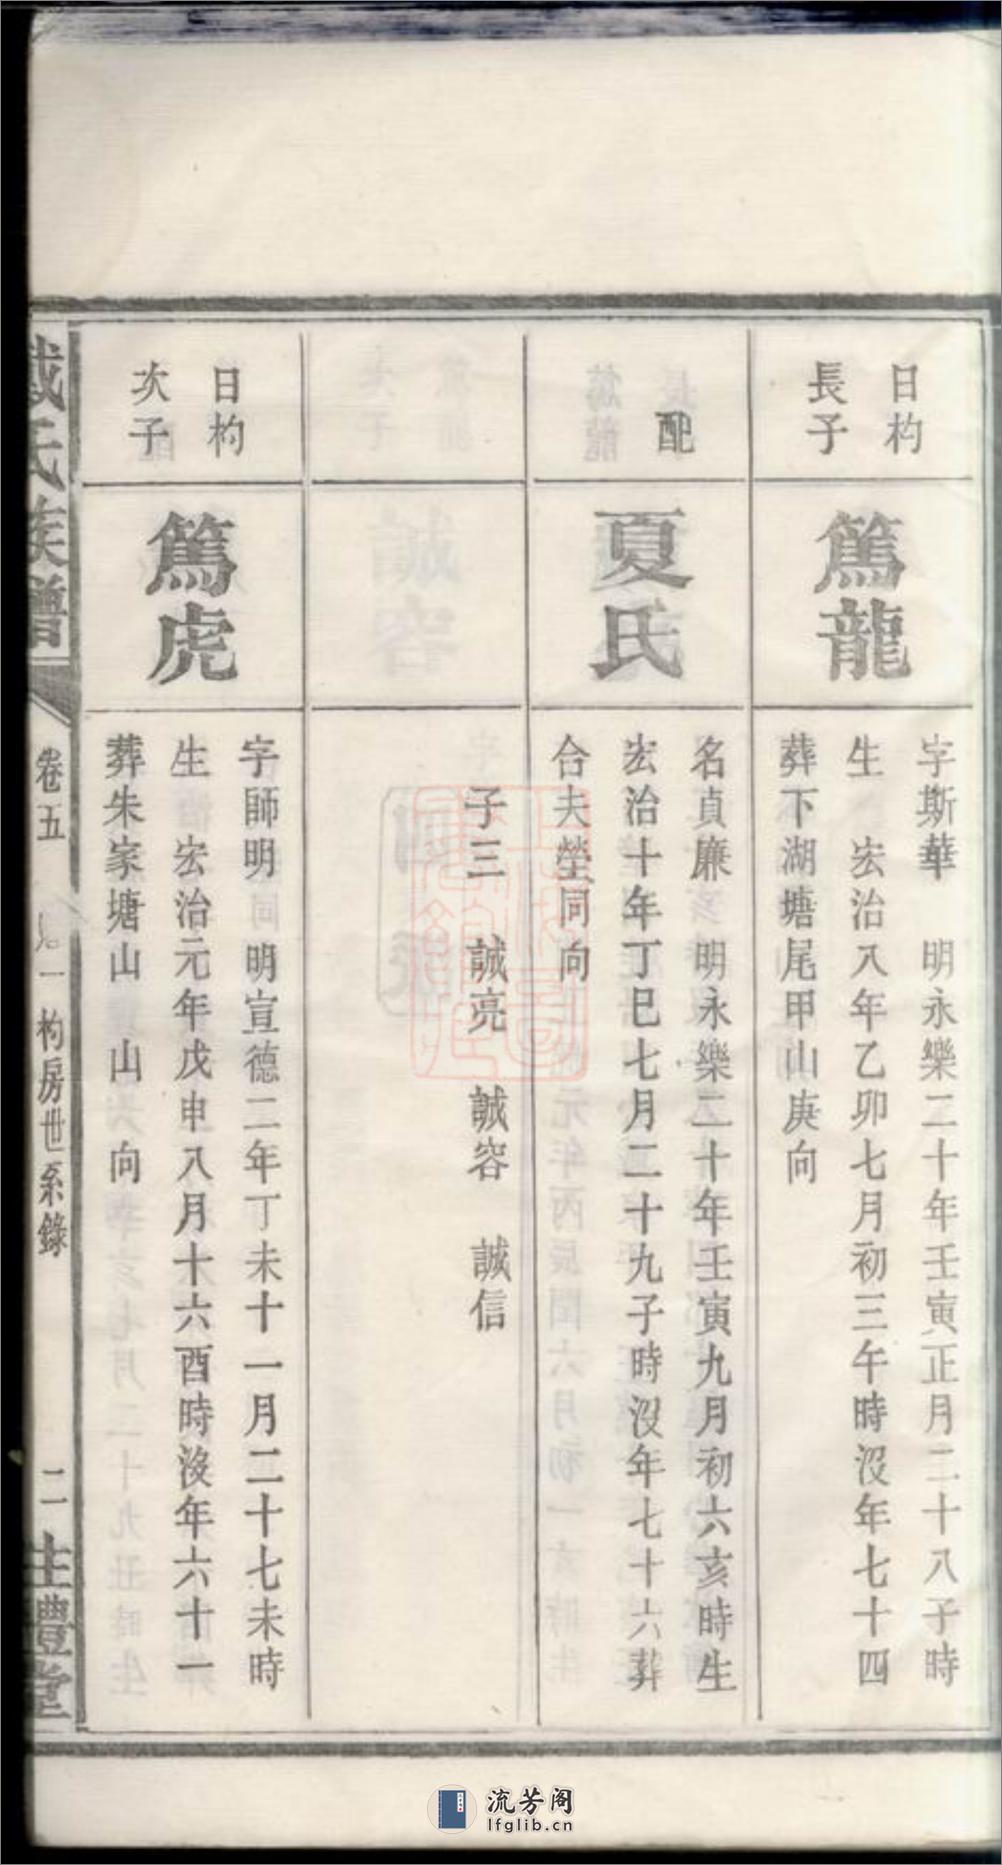 日杓
長子
篤龍
字斯華　明永樂二十年壬寅正月二十八子時
生　宏治八年乙卯七月初三午時没年七十四
葬下湖塘尾甲山庚向
配
夏氏
名貞廉　明永樂二十年壬寅九月初六亥時生
宏治十年丁巳七月二十九子時没年七十六葬
合夫塋同向
子三　誠亮　誠容　誠信
日杓
次子
篤虎
字師明　明宣德二年丁未十一月二十七未時
生　宏治元年戊申八月十六酉時没年六十一
葬朱家塘山　山　向
戴氏族譜
卷五
一杓房世系錄
二
禮堂
流芳阁
lfglib.cn